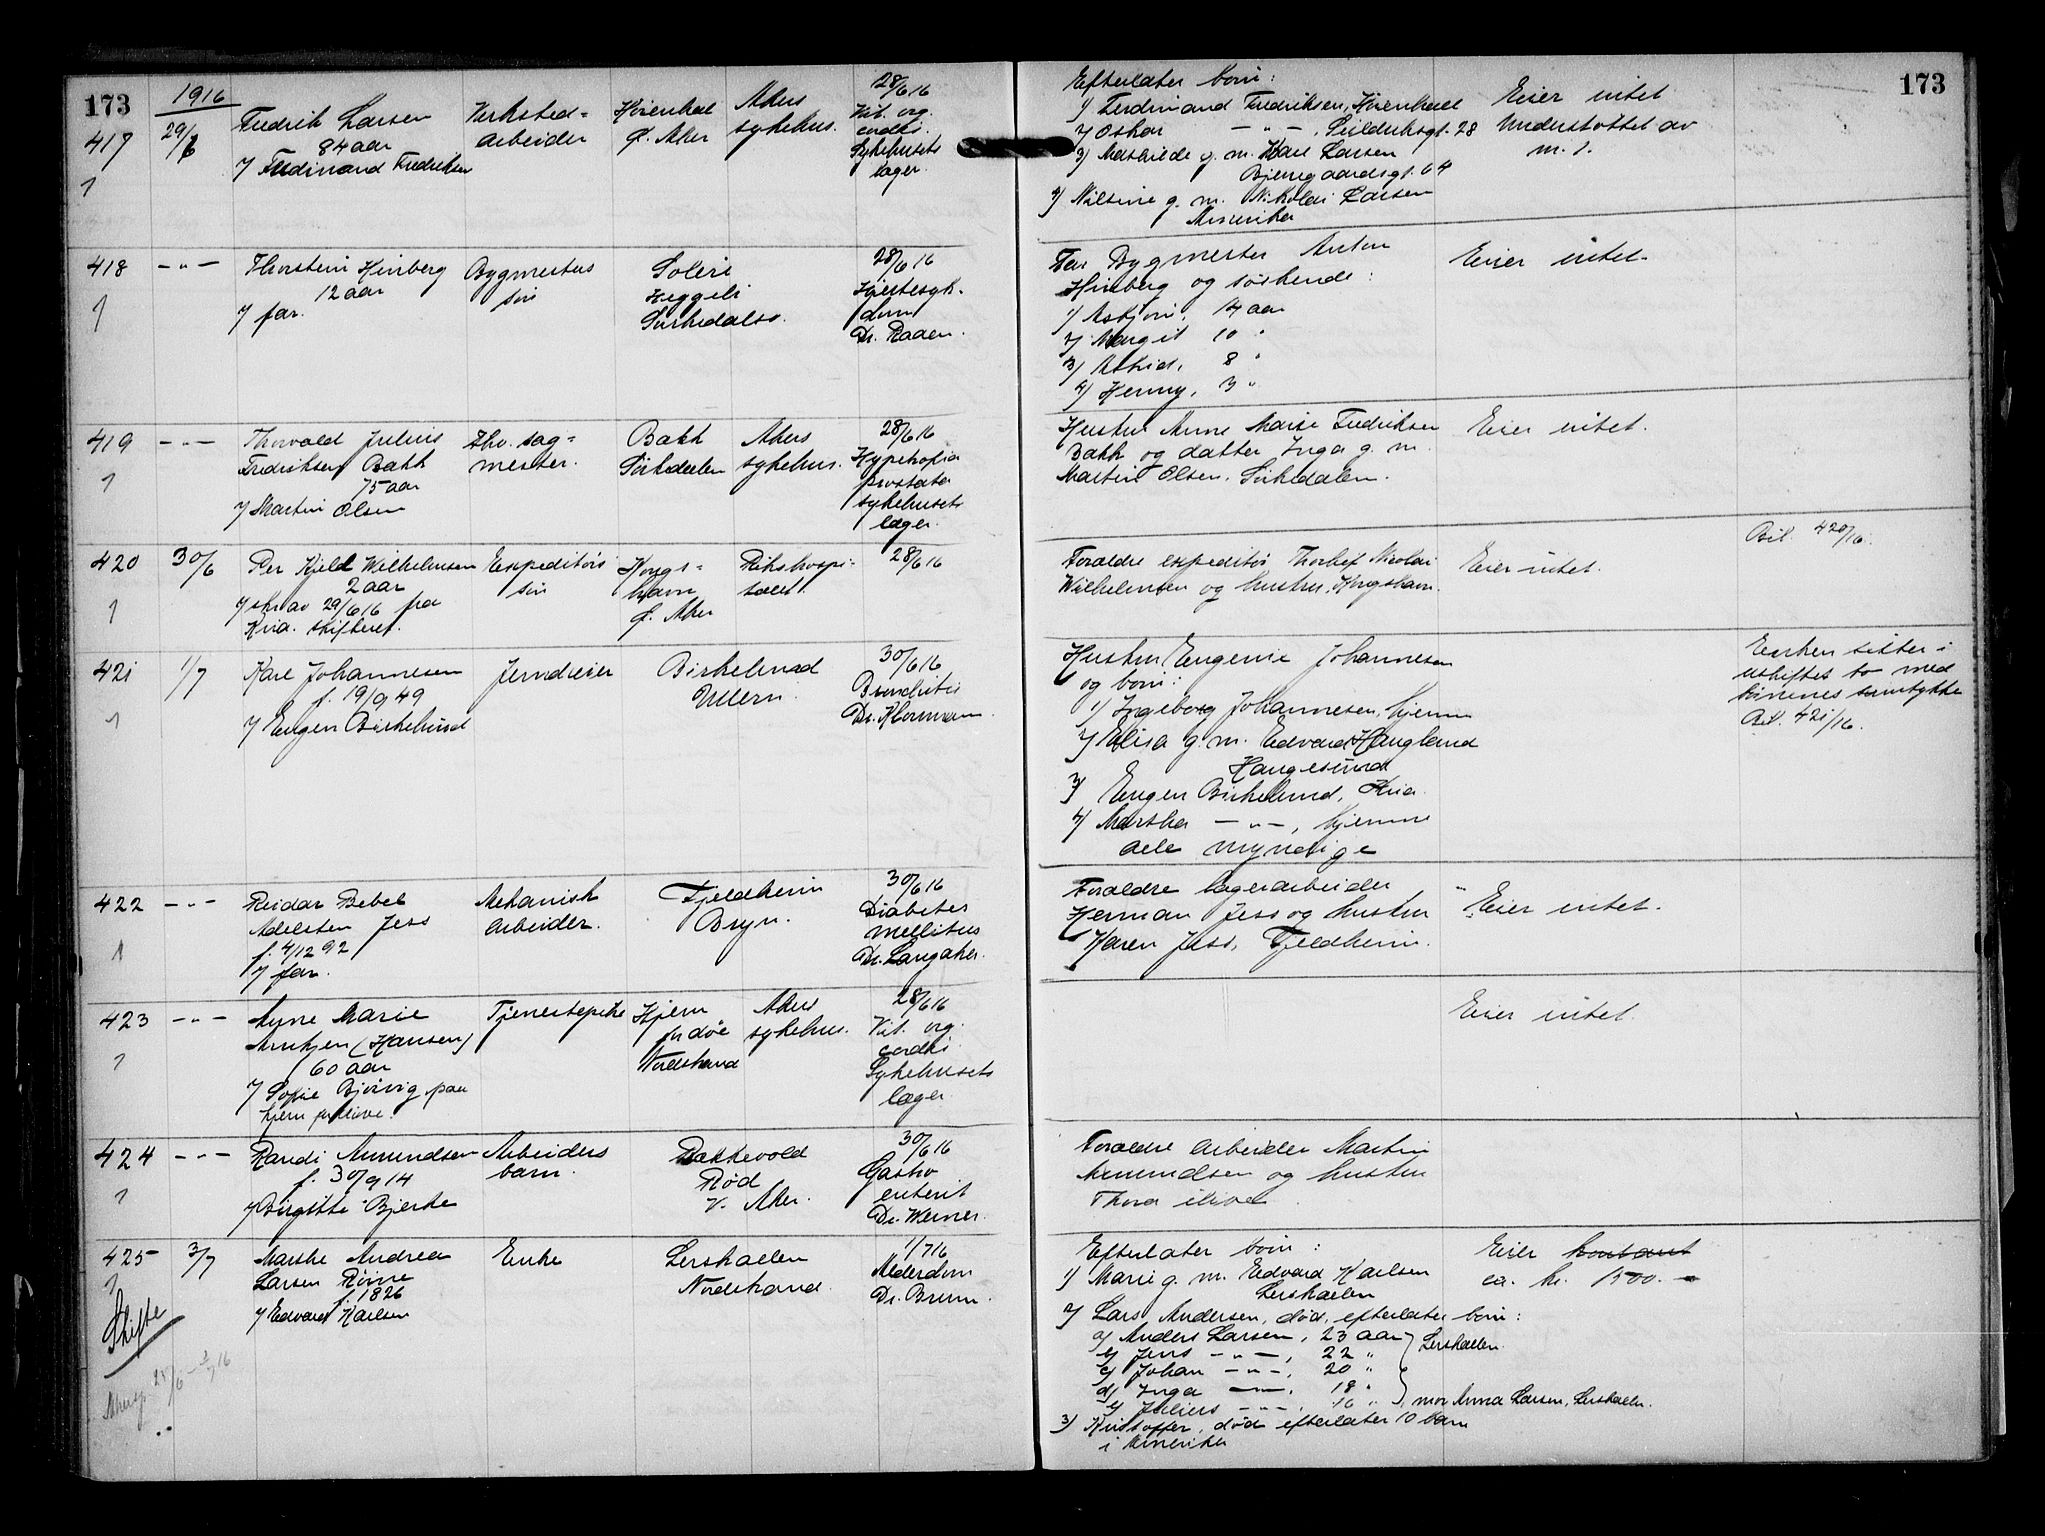 173
1916
417
29/6
Fredrik Larsen
84 aar
v/ Ferdinand Fredriksen
Verksted-
arbeider
Høienhal
Ø. Aker
Akers
sykehus.
28/6 16
Vit. org.
cordis.
Sykehusets
læger.
418
— " —
Thorstein Hinberg
12 aar
v/ far.
Bygmesters
søn
Solli
Heggeli
Sørkedalsv.
28/6 16
Hjertesyk-
dom
Dr. Raaen.
419
— " —
Thorvald Julius
Fredriksen Bakk
75 aar
v/ Martin Olsen
Fhv. sag-
mester.
Bakk
Sørkedalen
Akers
sykehus.
28/6 16
Hypetrofia
prostata
sykehusets
læger.
420
30/6
Per Kjeld Wilhelmsen
2 aar
v/ skr. av 29/6 16 fra
Kria. skifteret.
Expeditørs
søn
Kongs-
havn
Ø. Aker
Rikshospi-
talet.
28/6 16
421
1/7
Karl Johannesen
f. 19/9 49
v/ Eugen Birkelund
Jerndreier
Birkelund
Ullern.
30/6 16
Bronchitis
Dr. Klouman.
422
— " —
Reidar Bebel
Adelsten Jess
f. 4/12 92
v/ far.
Mekanisk
arbeider.
Fjeldheim
Bryn.
30/6 16
Diabetes
mellitus
Dr. Langaker.
423
— " —
Anne Marie
(Hansen)
60 aar
v/ Sofie Bjørvig paa
hjem for døve.
Tjenestepike
Hjem
for døve
Nordstrand
Akers
sykehus.
28/6 16
Vit. org.
cordis.
Sykehusets
læger.
424
— " —
Randi Amundsen
f. 30/9 14
v/ Birgitte Bjerke
Arbeiders
barn.
Bakkevold
Rød
V. Aker.
30/6 16
Gastro
enterit
Dr. Werner.
425
3/7
Marthe Andrea
Larsen
f. 1826
v/ Edvard Karlsen
Enke
Lerskallen
Nordstrand.
1/7 16
Alderdom
Dr. Bruun.
Skifte
173
Efterlater børn:
1) Ferdinand Fredriksen, Høienhall
2) Oskar — " —, Seilduksgt. 28
3) Mathilde g. m. Karl Larsen
Bjerregaardsgt. 64
4) Nilsine g. m. Nikolai Larsen
Amerika
Eier intet
Understøttet av
m. 1.
Far Bygmester Anton
Hinberg og søskende:
1) Asbjørn, 14 aar
2) Margit 10 "
3) Astrid, 8 "
4) Henny, 3 "
Eier intet.
Hustru Anne Marie Fredriksen
Bakk og datter Inga g. m.
Martin Olsen, Sørkedalen.
Eier intet.
Forældre expeditør Thorleif Nicolai
Wilhelmsen og hustru, Kongshavn.
Eier intet.
Bil. 420/16.
Hustru Eugenie Johannesen
og børn:
1) Ingeborg Johannesen, hjemme
2) Elisa g. m. Edvard Haugland
Haugesund
3) Eugen Birkelund, Kria.
4) Martha — " —, hjemme
alle myndige
Enken sitter i
uskiftet bo med
børnenes samtykke
Bil. 421/16.
Forældre lagerarbeider
Herman Jess og hustru
Karen Jess, Fjeldheim.
Eier intet.
Eier intet.
Forældre arbeider Martin
Amundsen og hustru
Thora ilive
Efterlater børn:
1) Marie g. m. Edvard Karlsen
Lerskallen
2) Lars Andersen, død, efterlater børn:
a) Anders Larsen, 23 aar
b) Jens — " —, 22 "
c) Johan — " —, 20 "
Lerskallen.
d) Inga — " —, 18 "
e) Julius — " —, 16 "
mor Anna Larsen, Lerskallen.
3) Kristoffer, død efterlater 10 barn
i Amerika
Eier kontant
ca. kr. 1500.—